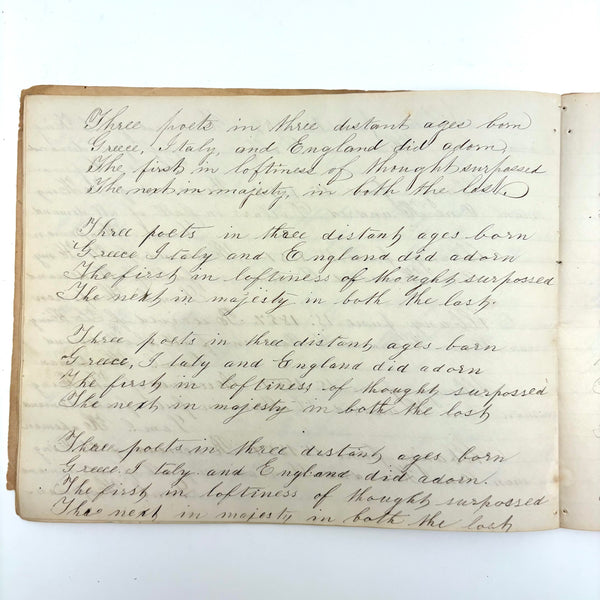 Three poets in three distant ages born
Greece, Italy, and England did adorn,
The first in loftiness of thought surpossed
The next in majesty, in both the last.
Three poets in three distant ages born
Greece Italy and England did adorn
The first in loftiness of thought surpossed
The next in majisty in both the last.
Three poets in three distant ages born
Greece, Italy and England did adorn
The first in loftiness of thought surpossed
The next in majesty in both the last
Three poets in three distant ages born
Greece Italy and England did adorn.
The first in loftiness of thought surpossed
The next in majesty in both the last